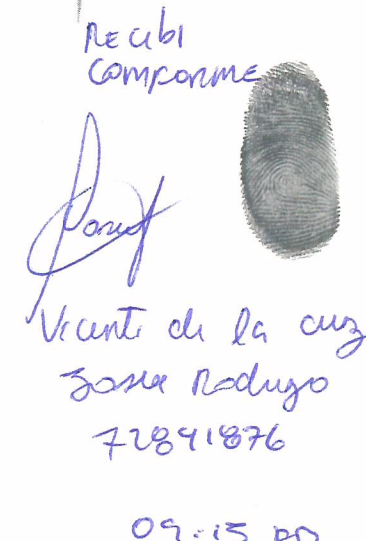 Recibi
Comforme
Vicente de la cruz
Rodrigo
72841876
09:15